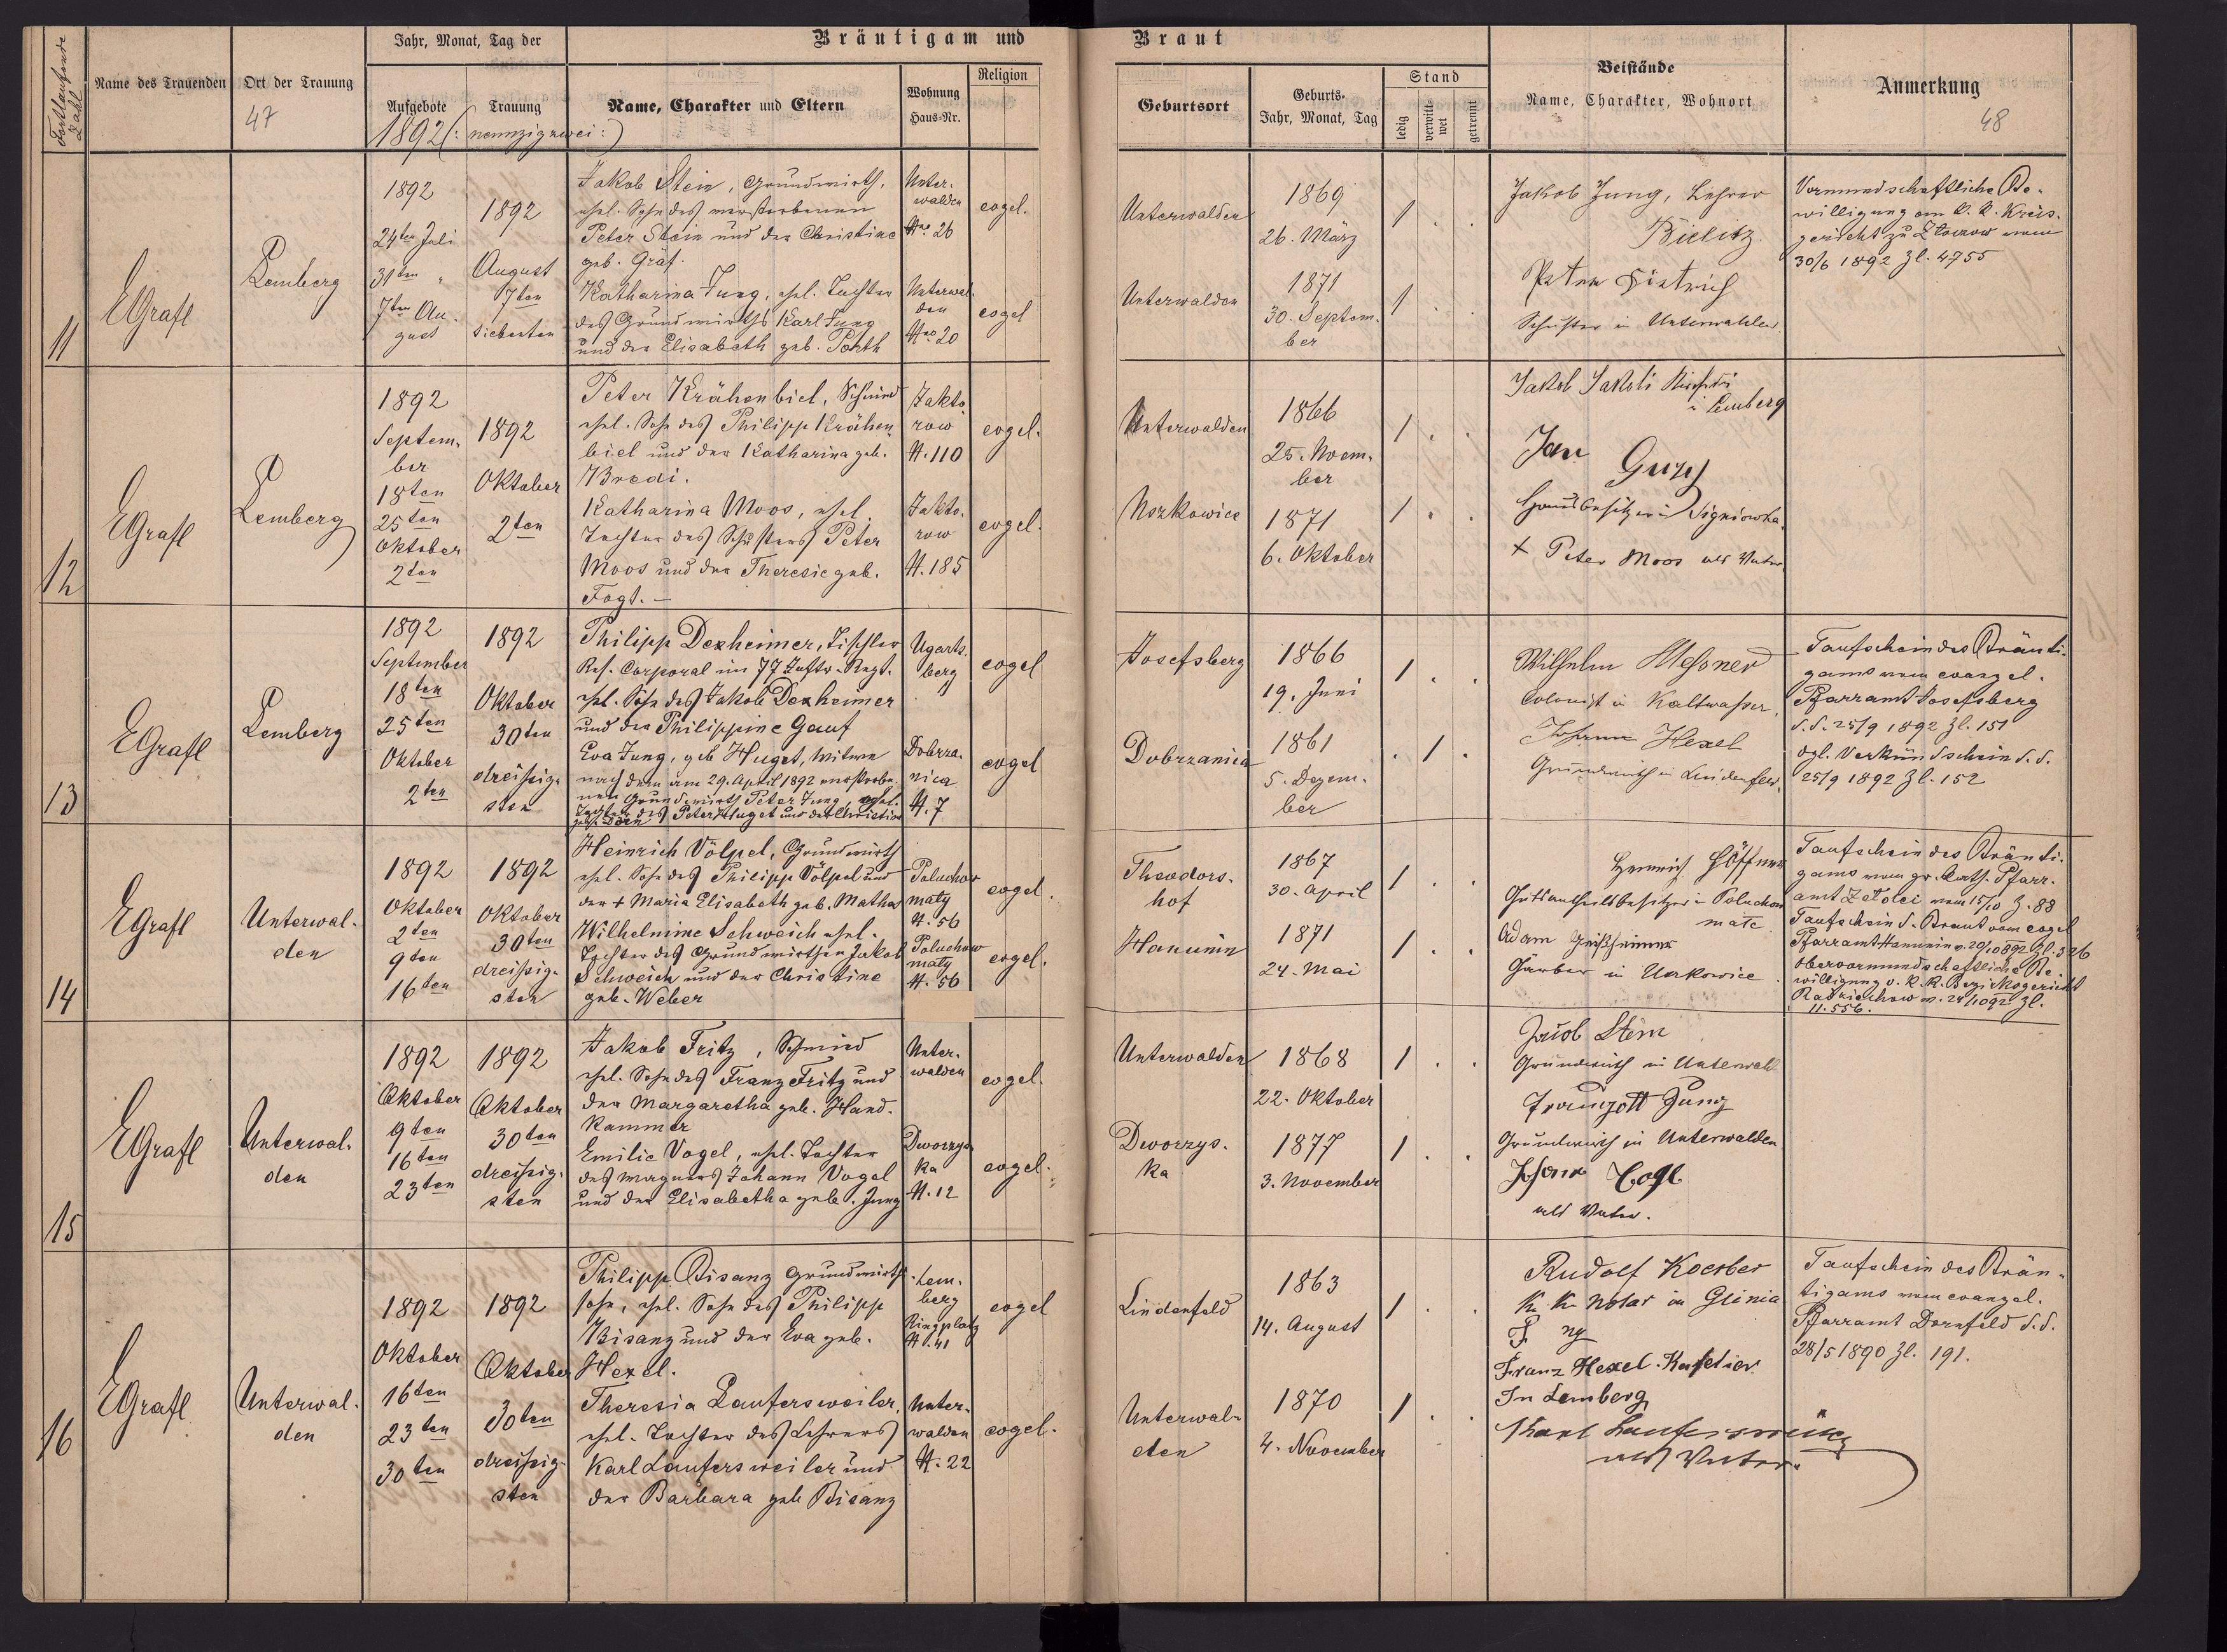 Fortlaufende Zahl
Name des Trauenden
Ort der Trauung
47
Jahr, Monat, Tag der
Aufgebote
Trauung
1892 (: neunzigzwei :)
Bräutigam und
Name, Charakter und Eltern
Wohnung
Haus-Nr.
Religion
Braut
Geburtsort
Geburts-
Jahr, Monat, Tag
Stand
ledig
verwitt-
wet
getrennt
Beistände
Name, Charakter, Wohnort
Anmerkung
48
11
EGrafl
Lemberg
1892
24ten Juli
31ten "
7ten Au-
gust
1892
August
7ten
siebenten
Jakob Stein, Grundwirth,
ehel. Sohn des verstorbenen
Peter Stein und der Christine
geb. Gräf.
Unter-
walden
Nro 26
evgel.
Katharina Jung, ehel. Tochter
des Grundwirths Karl Jung
und der Elisabeth geb. Porth
Unterwal-
den
Nro 20
evgel
Unterwalden
1869
26. März
1 . .
Unterwalden
1871
30. Septem-
ber
1 . .
Jakob Jung, Lehrer
Bielitz.
Peter Dietrich
Schuster in Unterwalden
Vormundschaftliche Be-
willigung vom k. k. Kreis-
gericht zu Zloczow vom
30/6 1892 Zl. 4755
12
EGrafl
Lemberg
1892
Septem-
ber
18ten
25ten
Oktober
2ten
1892
Oktober
2ten
Peter Krähenbiel, Schmied
ehel. Sohn des Philipp Krähen-
biel und der Katharina geb.
Bredi.
Jakto-
row
N. 110
evgel.
Katharina Moos, ehel.
Tochter des Schusters Peter
Moos und der Theresie geb.
Fogt. –
Jakto-
row
N. 185
evgel.
Unterwalden
1866
25. Novem-
ber
1 . .
1871
6. Oktober
1 . .
Jakob Jakobi
in Lemberg
Jan
Hausbesitzer in Signiowka.
+ Peter Moos als Vater
13
EGrafl
Lemberg
1892
September
18ten
25ten
Oktober
2ten
1892
Oktober
30ten
dreißig-
sten
Philipp Dexheimer, Tischler
Res. Corporal im 77 Inftr. Regt.
ehel. Sohn des Jakob Dexheimer
und der Philippine Gauf
Ugarts-
berg
evgel
Eva Jung, geb Huget, Witwe
nach dem am 29. April 1892 verstorbe-
nen Grundwirth Peter Jung, ehel.
Tochter des Peter Huget und der Christine
Dobrza-
nica
N. 7
evgel
Josefsberg
1866
19. Juni
1 . .
Dobrzanica
1861
5. Dezem-
ber
. 1 .
Wilhelm Meßner
Colonist in Kaltwasser
Johann Hexel
Grundwirth in Lindenfeld.
Taufschein des Bräuti-
gams vom evangel.
Pfarramt Josefsberg
d. d. 25/9 1892 Zl. 151
vgl. Verkündschein d. d.
25/9 1892 Zl. 152
14
EGrafl
Unterwal-
den
1892
Oktober
2ten
9ten
16ten
1892
Oktober
30ten
dreißig-
sten
Heinrich Völpel, Grundwirth
ehel. Sohn des Philipp Völpel und
der + Maria Elisabeth geb. Mathes
Poluchow
maly
N. 56
evgel.
Wilhelmine Schweich ehel.
Tochter des Grundwirthen Jakob
Schweich und der Christine
geb. Weber
Poluchow
maly
N. 56
evgel.
Theodors-
hof
1867
30. April
1 . .
Hanunin
1871
24. Mai
1 . .
Heinrich Höffner
Gutsantheilsbesitzer in Poluchow
Adam
Taufschein des Bräuti-
gams vom gr. kath. Pfarr-
amt vom 15/10 Z. 88
Taufschein d. Braut vom evgel
Pfarramt Hanunin v. 20/10 892 Zl. 326
Obervormundschaftliche Be-
willigung v. k. k. Bezirksgericht
Radziechow
11.556.
15
EGrafl
Unterwal-
den
1892
Oktober
9ten
16ten
23ten
1892
Oktober
30ten
dreißig-
sten
Jakob Fritz, Schmied
ehel. Sohn des Franz Fritz und
der Margaretha geb. Hand-
kammer
Unter-
walden
evgel.
Emilie Vogel, ehel. Tochter
des Wagners Johann Vogel
und der Elisabetha geb. Jung
Dworzys-
ka
N. 12
evgel.
Unterwalden
1868
22. Oktober
1 . .
Dworzys-
ka
1877
3. November
1 . .
Jacob Stein
Grundwirth in Unterwald
Traugott Jung
Grundwirth in Unterwalden
Johann Vogl
als Vater.
16
EGrafl
Unterwal-
den
1892
Oktober
16ten
23ten
30ten
1892
Oktober
30ten
dreißig-
sten
Philipp Bisanz Grundwirths-
sohn, ehel. Sohn des Philipp
Bisanz und der Eva geb.
Hexel.
Lem-
berg
Ringplatz
N. 41
evgel
Theresia Laufersweiler,
ehel. Tochter des Lehrers
Karl Laufersweiler und
der Barbara geb Bisanz
Unter-
walden
N. 22
evgel.
Lindenfeld
1863
14. August
1 . .
Unterwal-
den
1870
4. November
1 . .
Rudolf Koerber
K. K. Notar in Glinia
Franz Hexel
In Lemberg
Karl Laufersweiler
als Vater.
Taufschein des Bräu-
tigams vom evangel.
Pfarramt Dornfeld d. d.
28/5 1890 Zl. 191.